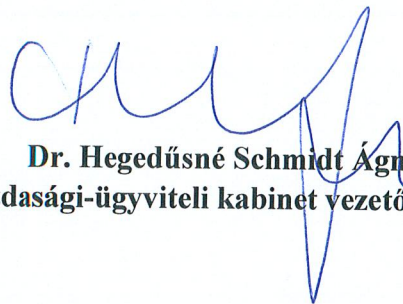 Dr. Hegedűsné Schmidt Ágn
dasági-ügyviteli kabinet vezető